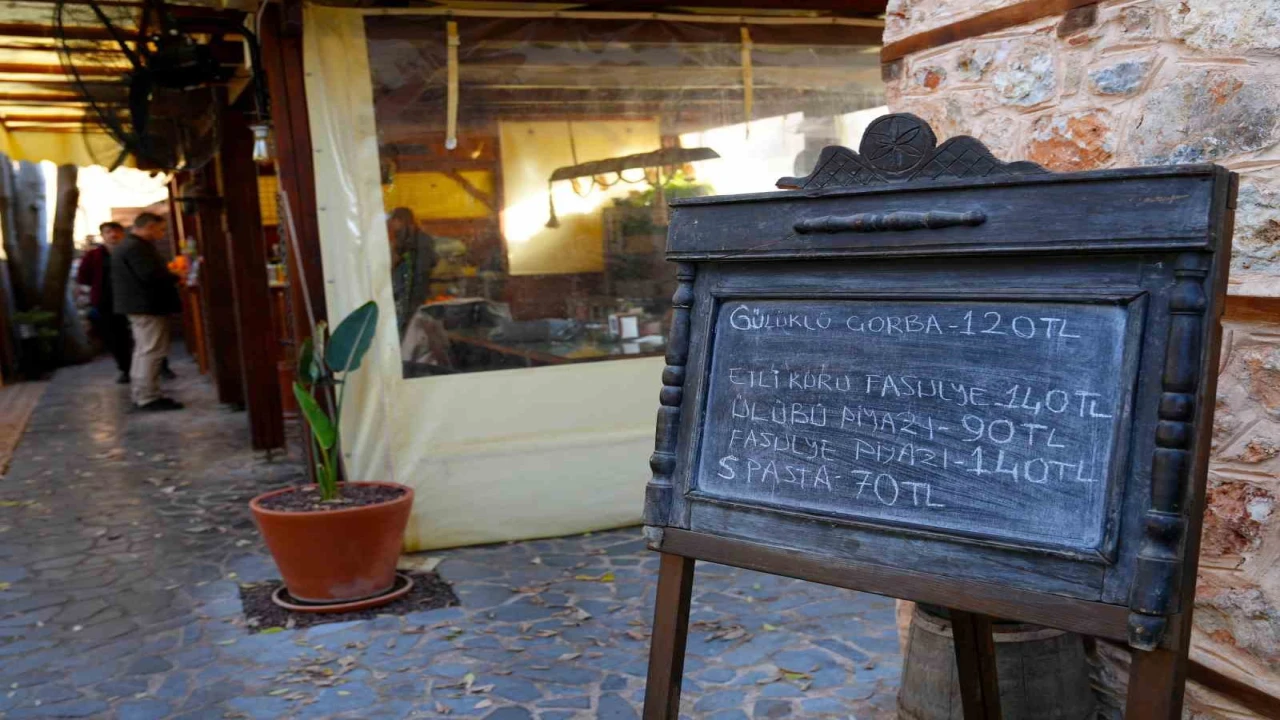 GÜLÜKLÜ GORBA-120TL
ETLİ KURU FASULYE-140TL
ÜLÜBÜ PİYAZI-90TL
FASULYE PİYAZI-140TL
S PASTA-70TL